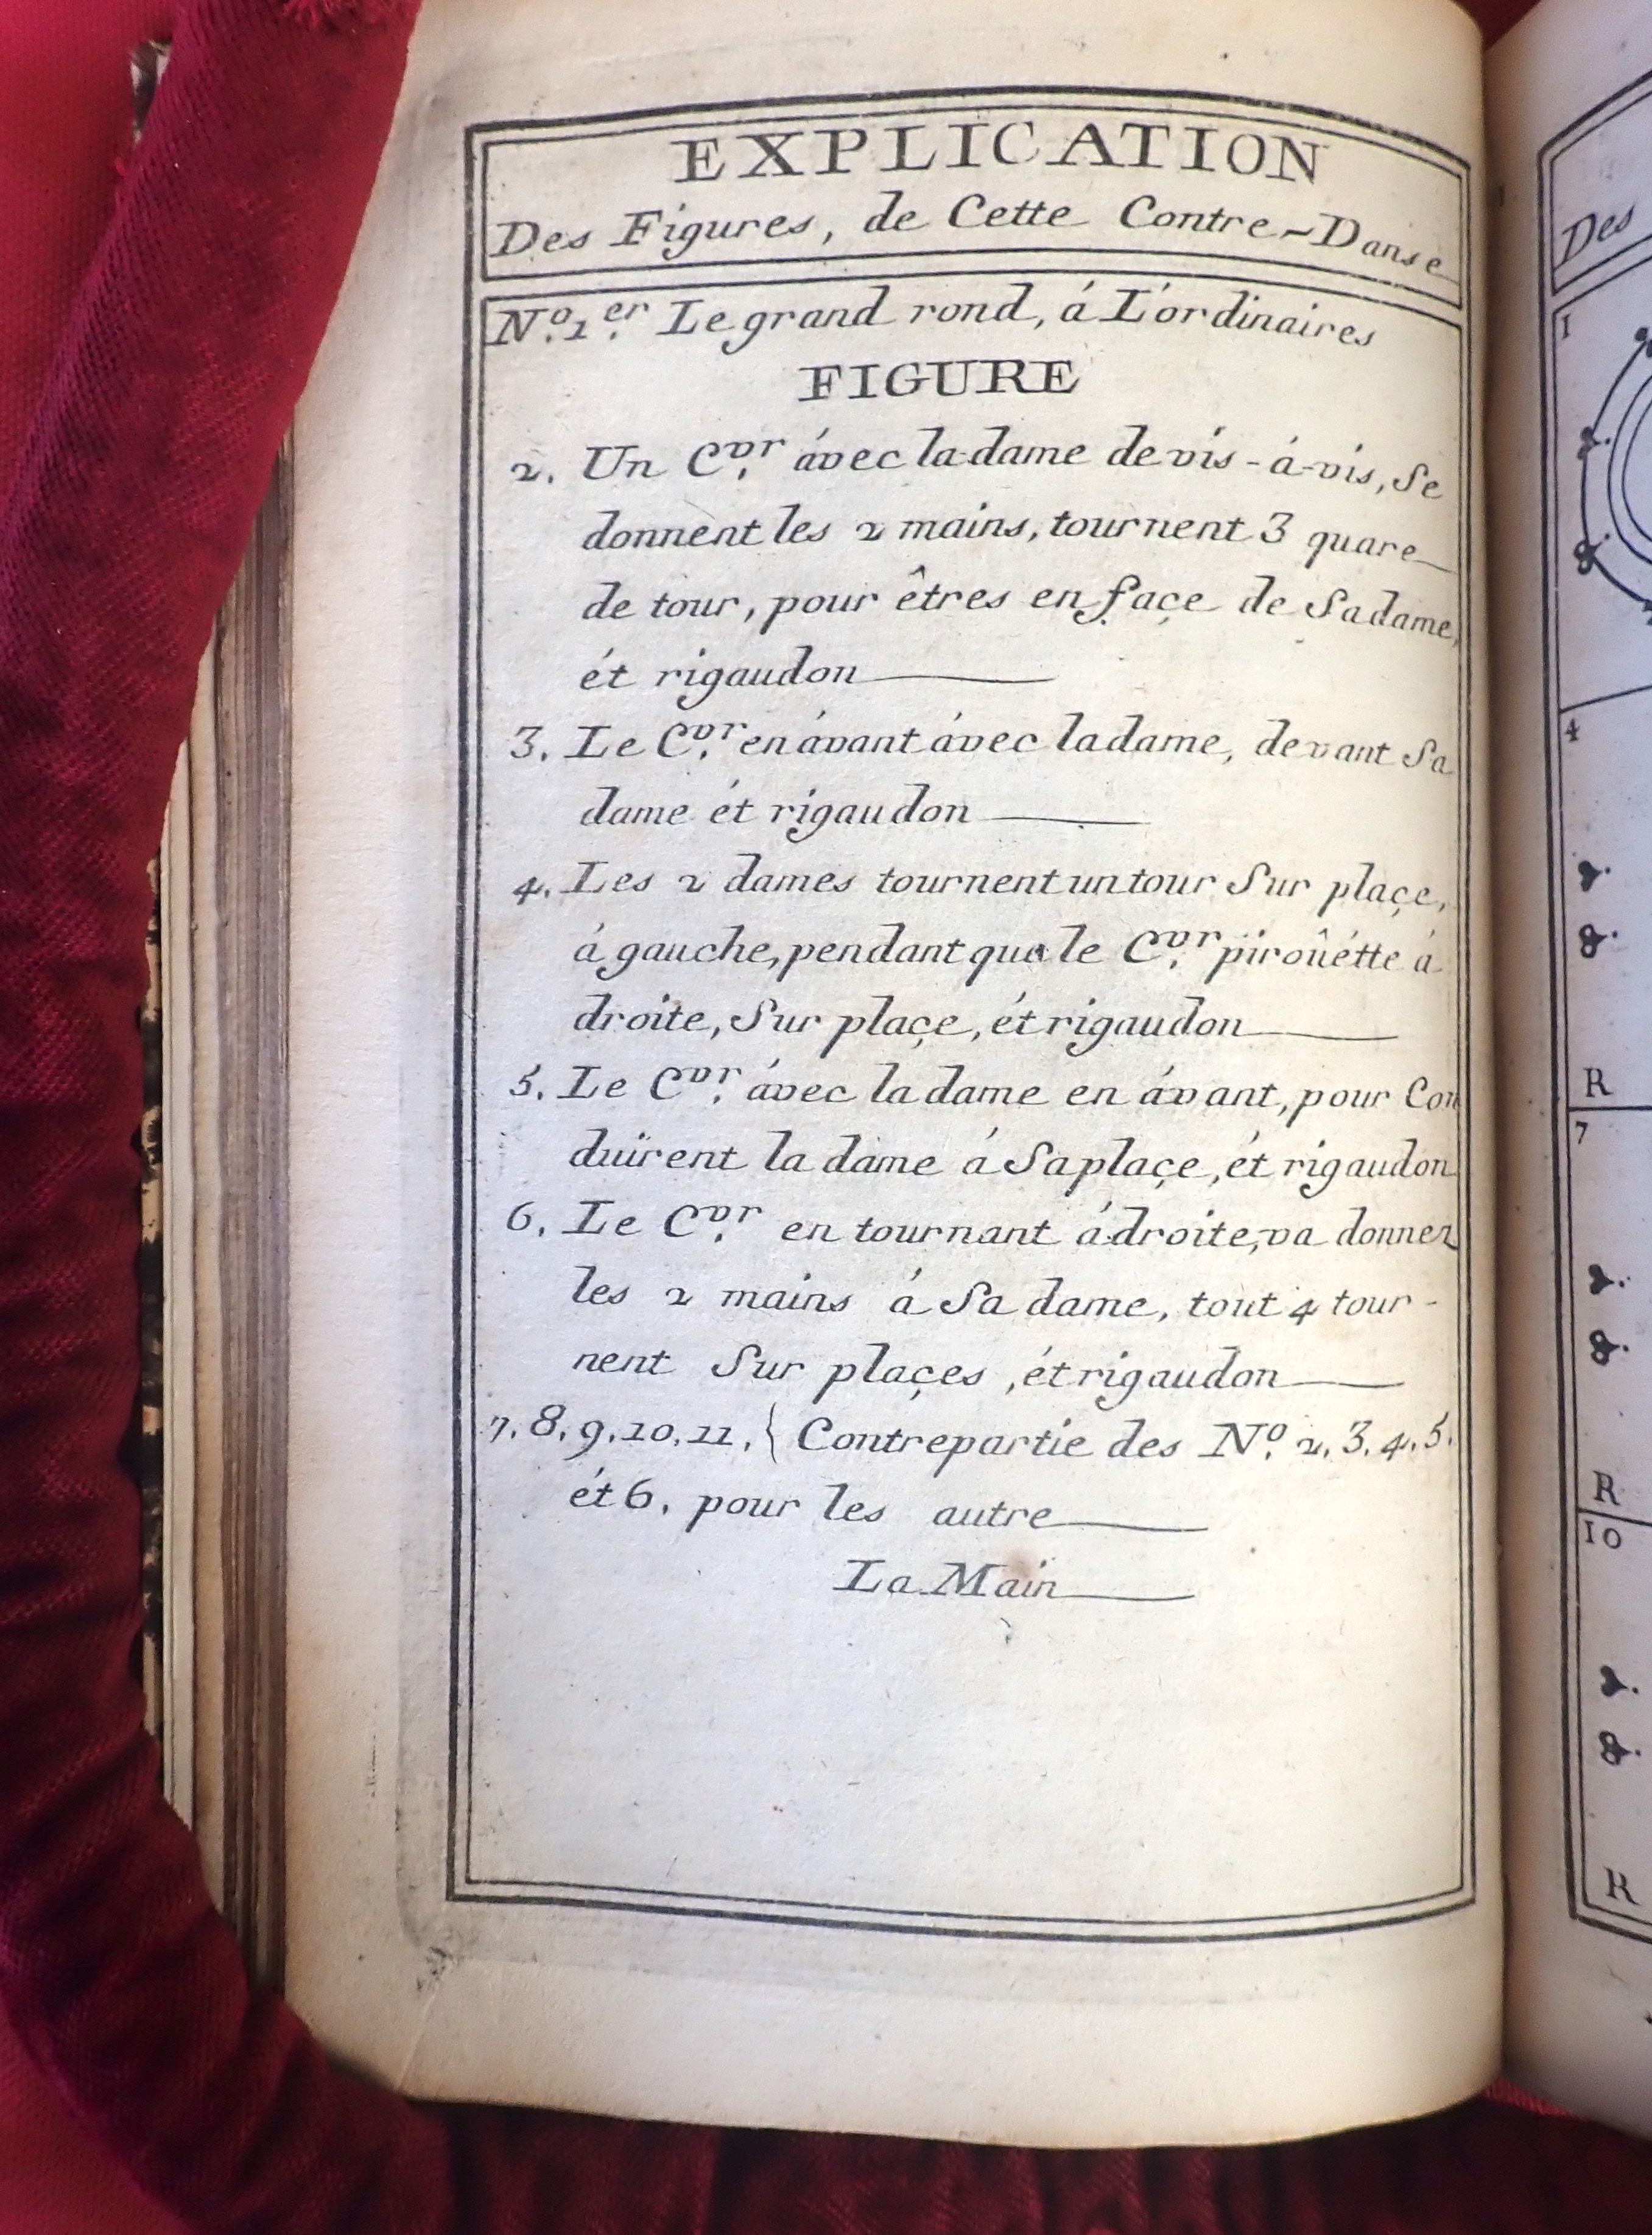 EXPLICATION
Des Figures, de Cette Contre-Danse
Nº. 1er. Le grand rond, á L'ordinaires
FIGURE
2. Un Cvr. ávec la dame de vis-á-vis, Se
donnent les 2 mains, tournent 3 quare
de tour, pour êtres en façe de Sa dame,
ét rigaudon
3. Le Cvr. en ávant ávec la dame, devant Sa
dame ét rigaudon
4. Les 2 dames tournent un tour Sur plaçe,
á gauche, pendant que le Cvr. piroûétte á
droite, Sur plaçe, ét rigaudon
5. Le Cvr. ávec la dame en ávant, pour Con
duïrent la dame á Sa plaçe, ét rigaudon
6. Le Cvr. en tournant á droite, va donner
les 2 mains á Sa dame, tout 4 tour-
nent Sur plaçes, ét rigaudon
7. 8. 9. 10. 11. { Contrepartie des Nº. 2. 3. 4. 5.
ét 6. pour les autre
La Main
Des
1
4
R
7
R
10
R